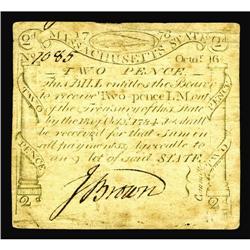 2d 17 78 2d
MASSACHUSETTS STATE
No 7985 Octr. 16
TWO PENCE
This BILL entitles the Bearer
to receive Two pence L.M. out
of the Treasury of this State
by the 18th Octr. 1784 &
shall be received for that Sum in
all payments agreeable to
an of said STATE
TWO PENCE
TWO PENCE
J Brown
Committee
2d 2d